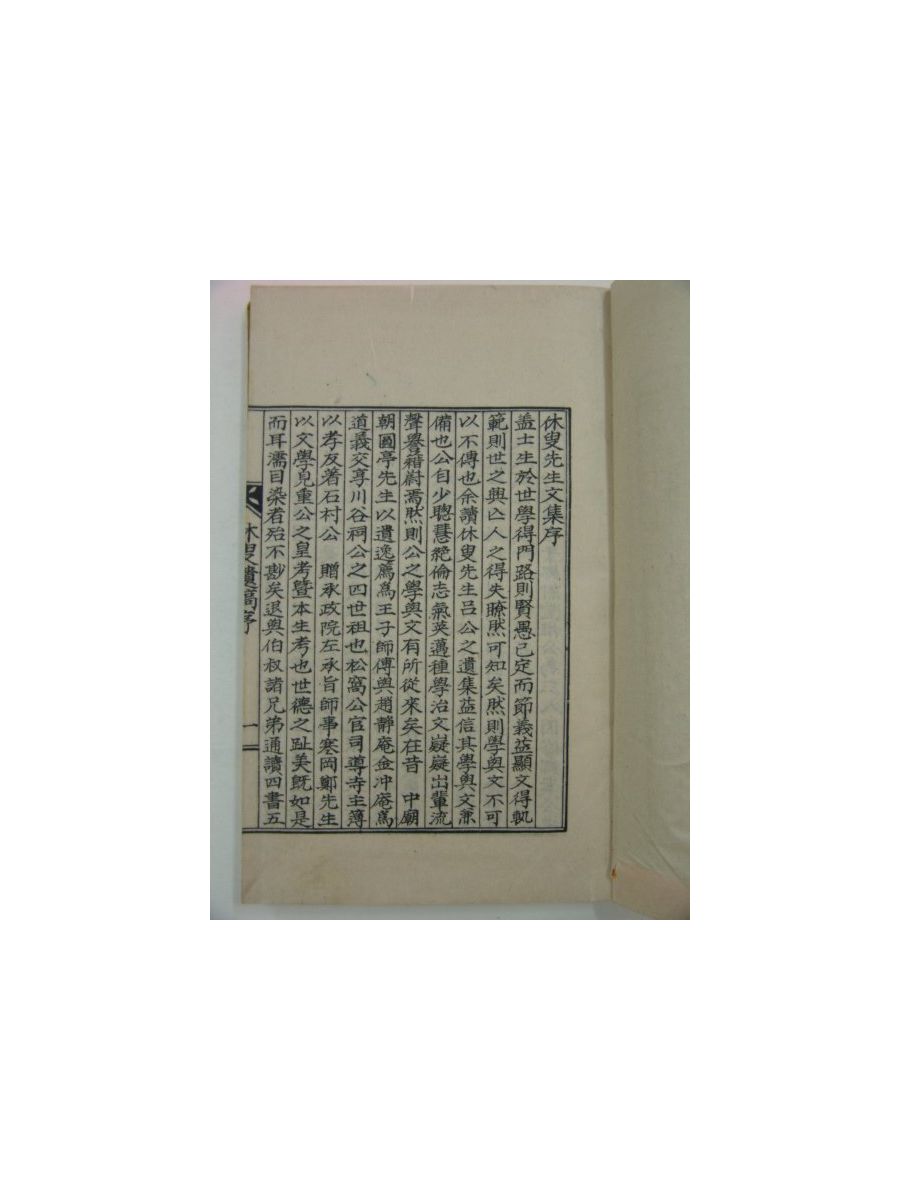 休叟先生文集序
盖士生於世學得門路則賢愚已定而節義益顯文得軌
範則世之興亡人之得失瞭然可知矣然則學與文不可
以不傳也余讀休叟先生呂公之遺集益信其學與文兼
備也公自少聰慧絶倫志氣英邁種學治文嶷嶷出輩流
聲譽籍蔚焉然則公之學與文有所從來矣在昔 中廟
朝國亭先生以遺逸薦爲王子師傅與趙靜庵金冲庵爲
道義交享川谷祠公之四世祖也松窩公官司導寺主簿
以孝友著石村公 贈承政院左承旨師事寒岡鄭先生
以文學見重公之皇考曁本生考也世德之趾美旣如是
而耳濡目染者殆不尠矣退與伯叔諸兄弟通讀四書五
休叟遺稿序 一